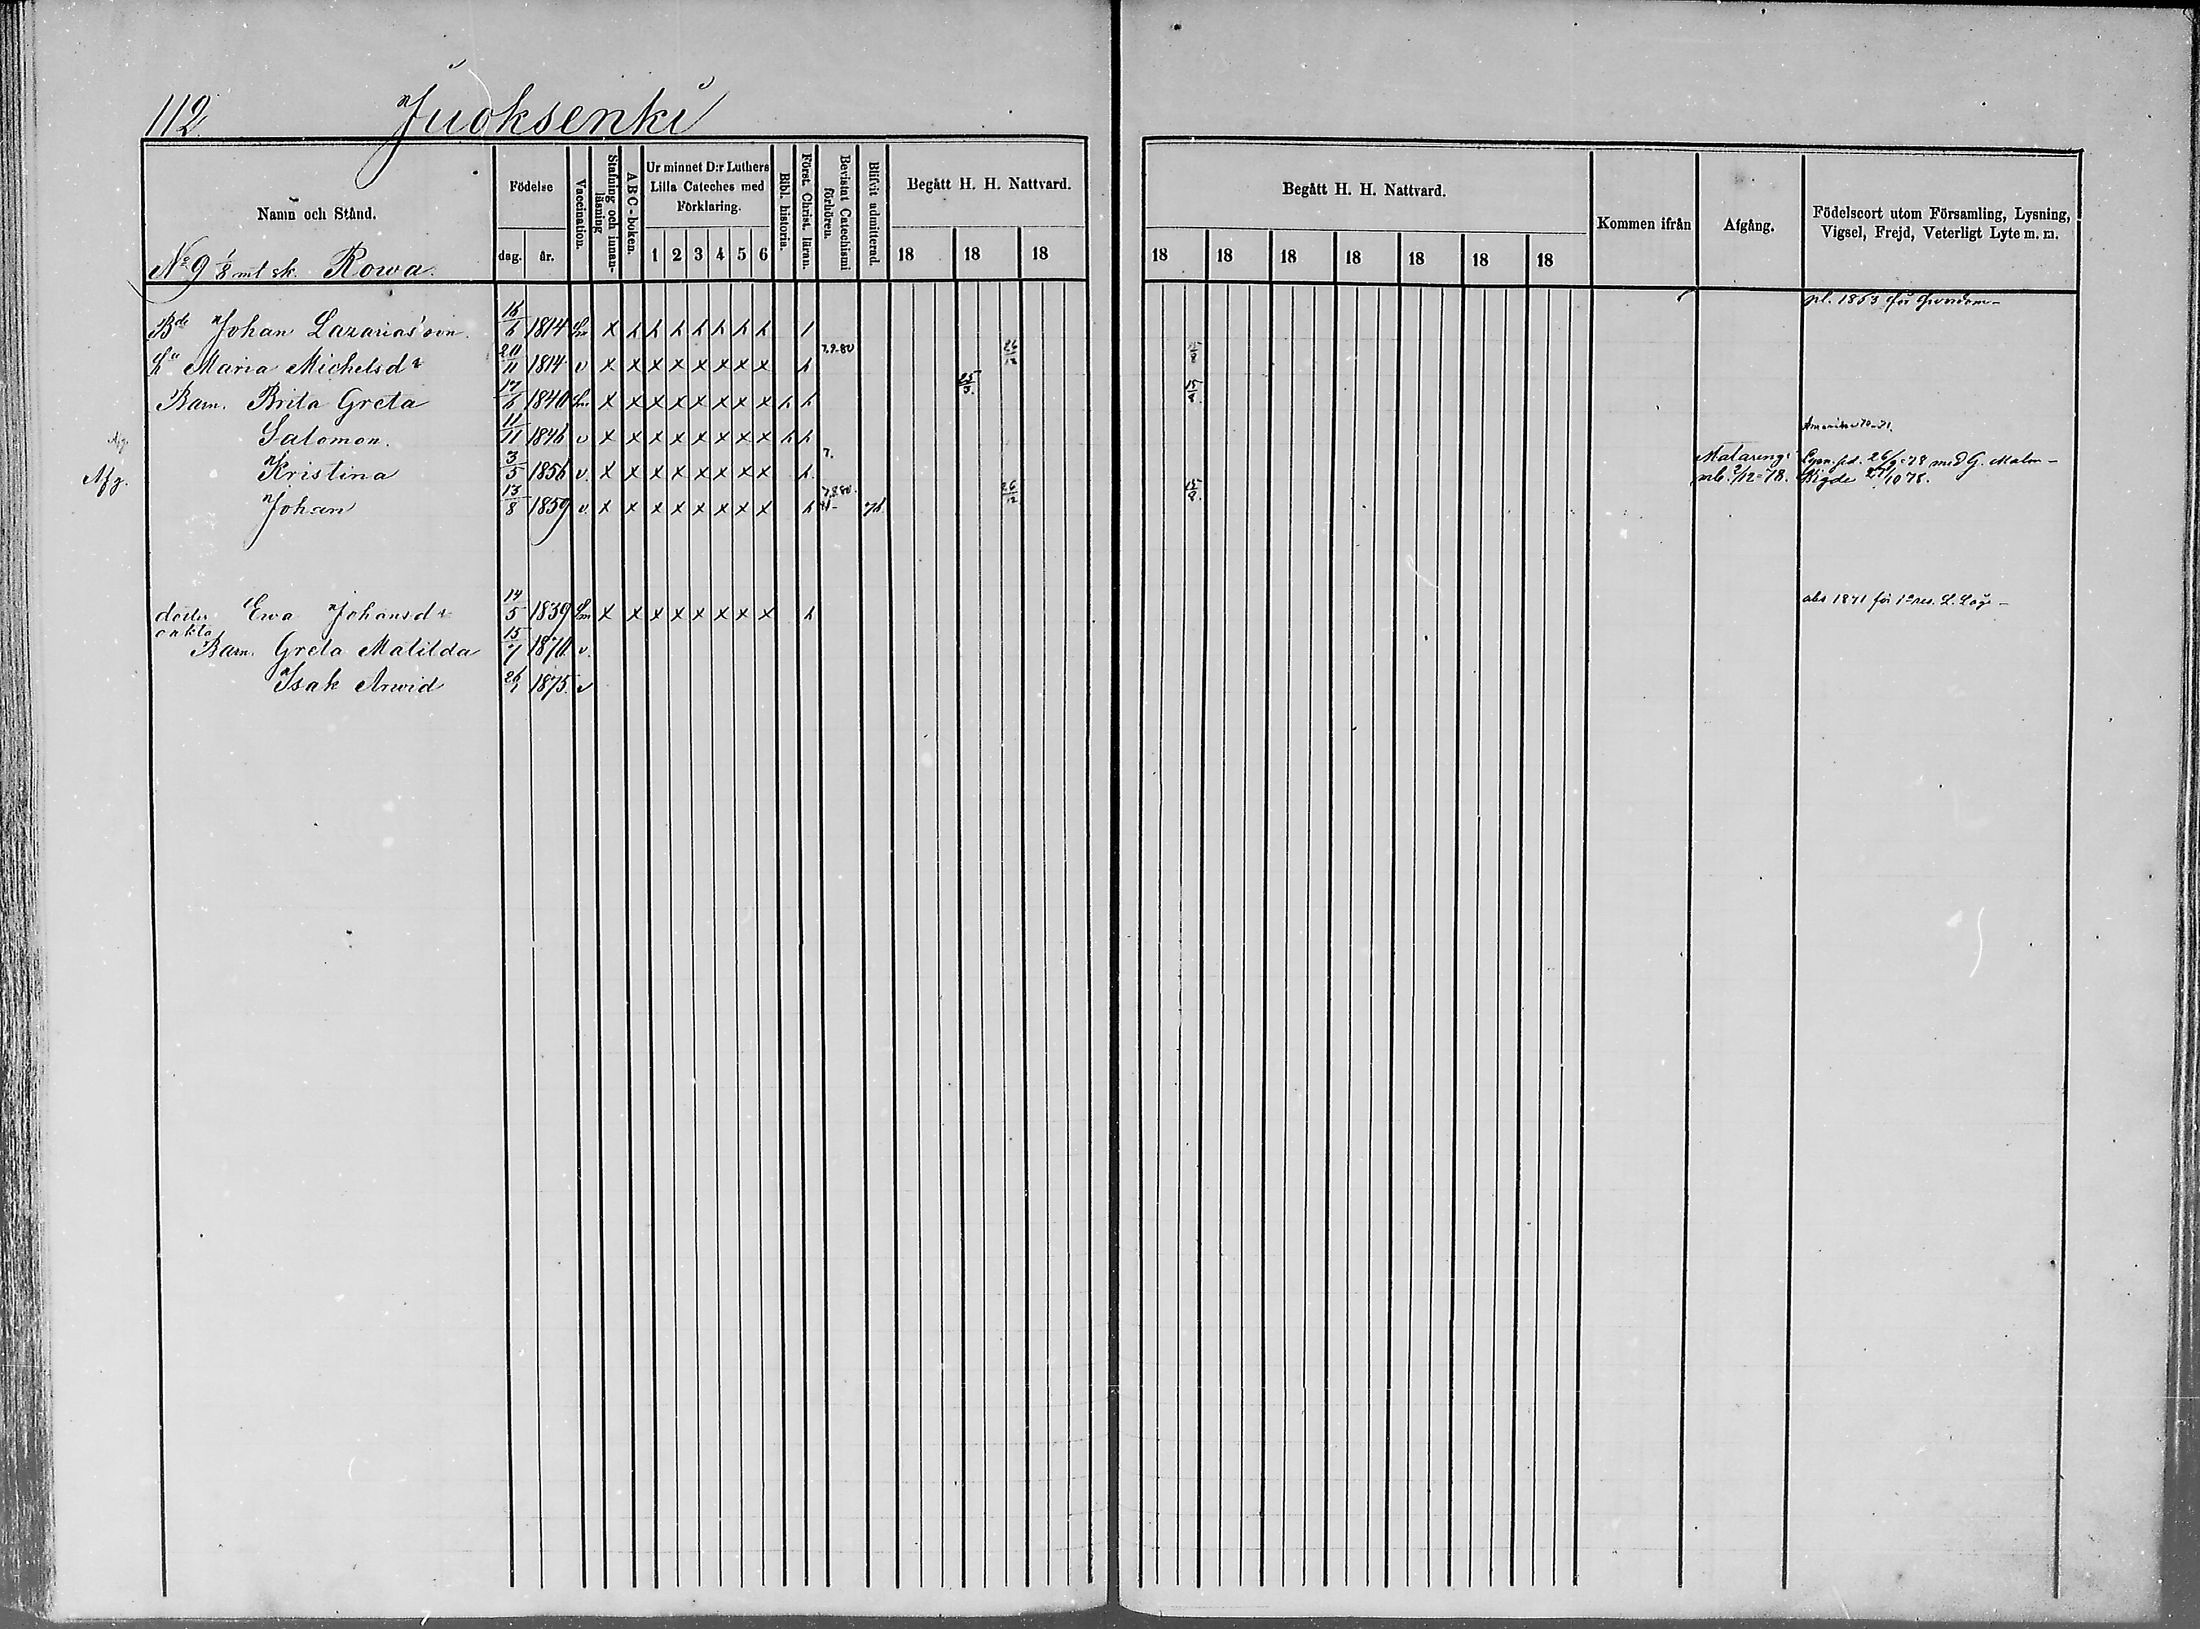 112. Juoksenki
Namn och Stånd.
Födelse
dag. år.
Vaccination.
Stafning och innan-läsning
ABC-boken.
Ur minnet D:r Luthers Lilla Cateches med Förklaring.
1 2 3 4 5 6
Bibl. historia.
Först. Christ. läran.
Bevistat Catechismi förhören.
Blifvit admitterad.
Begått H. H. Nattvard.
18 18 18
Begått H. H. Nattvard.
18 18 18 18 18 18 18
Kommen ifrån
Afgång.
Födelseort utom Församling, Lysning, Vigsel, Frejd, Veterligt Lyte m. m.
No 9 1/8 mtl sk. Rowa.
Bde Johan Lazarias'son 16/6 1814 x h h h h h h h h pl. 1853 för
Hu Maria Michelsdr 20/11 1814 v x x x x x x x x h 7.9.80 26/12 15/8
Barn. Brita Greta 17/6 1840 x x x x x x x x h h 25/3. 15/8.
Salomon. 11/11 1846 v x x x x x x x x h h Amerika 70-71.
Afg. Kristina 3/5 1856 v. x x x x x x x x h. 7. Matarengi mb. 2/12-78. Lysn. 26/9-78 med G. Malm- Vigde 27/10 78.
Johan 13/8 1859 v. x x x x x x x x h 7.8.80. 76 26/12 15/8.
dotter enkla Ewa Johansdr 14/5 1839 x x x x x x x x h abs 1871 för 1a res. L. Läg-
Barn. Greta Matilda 15/7 1870. v.
Isak Arwid 26/1 1875. v